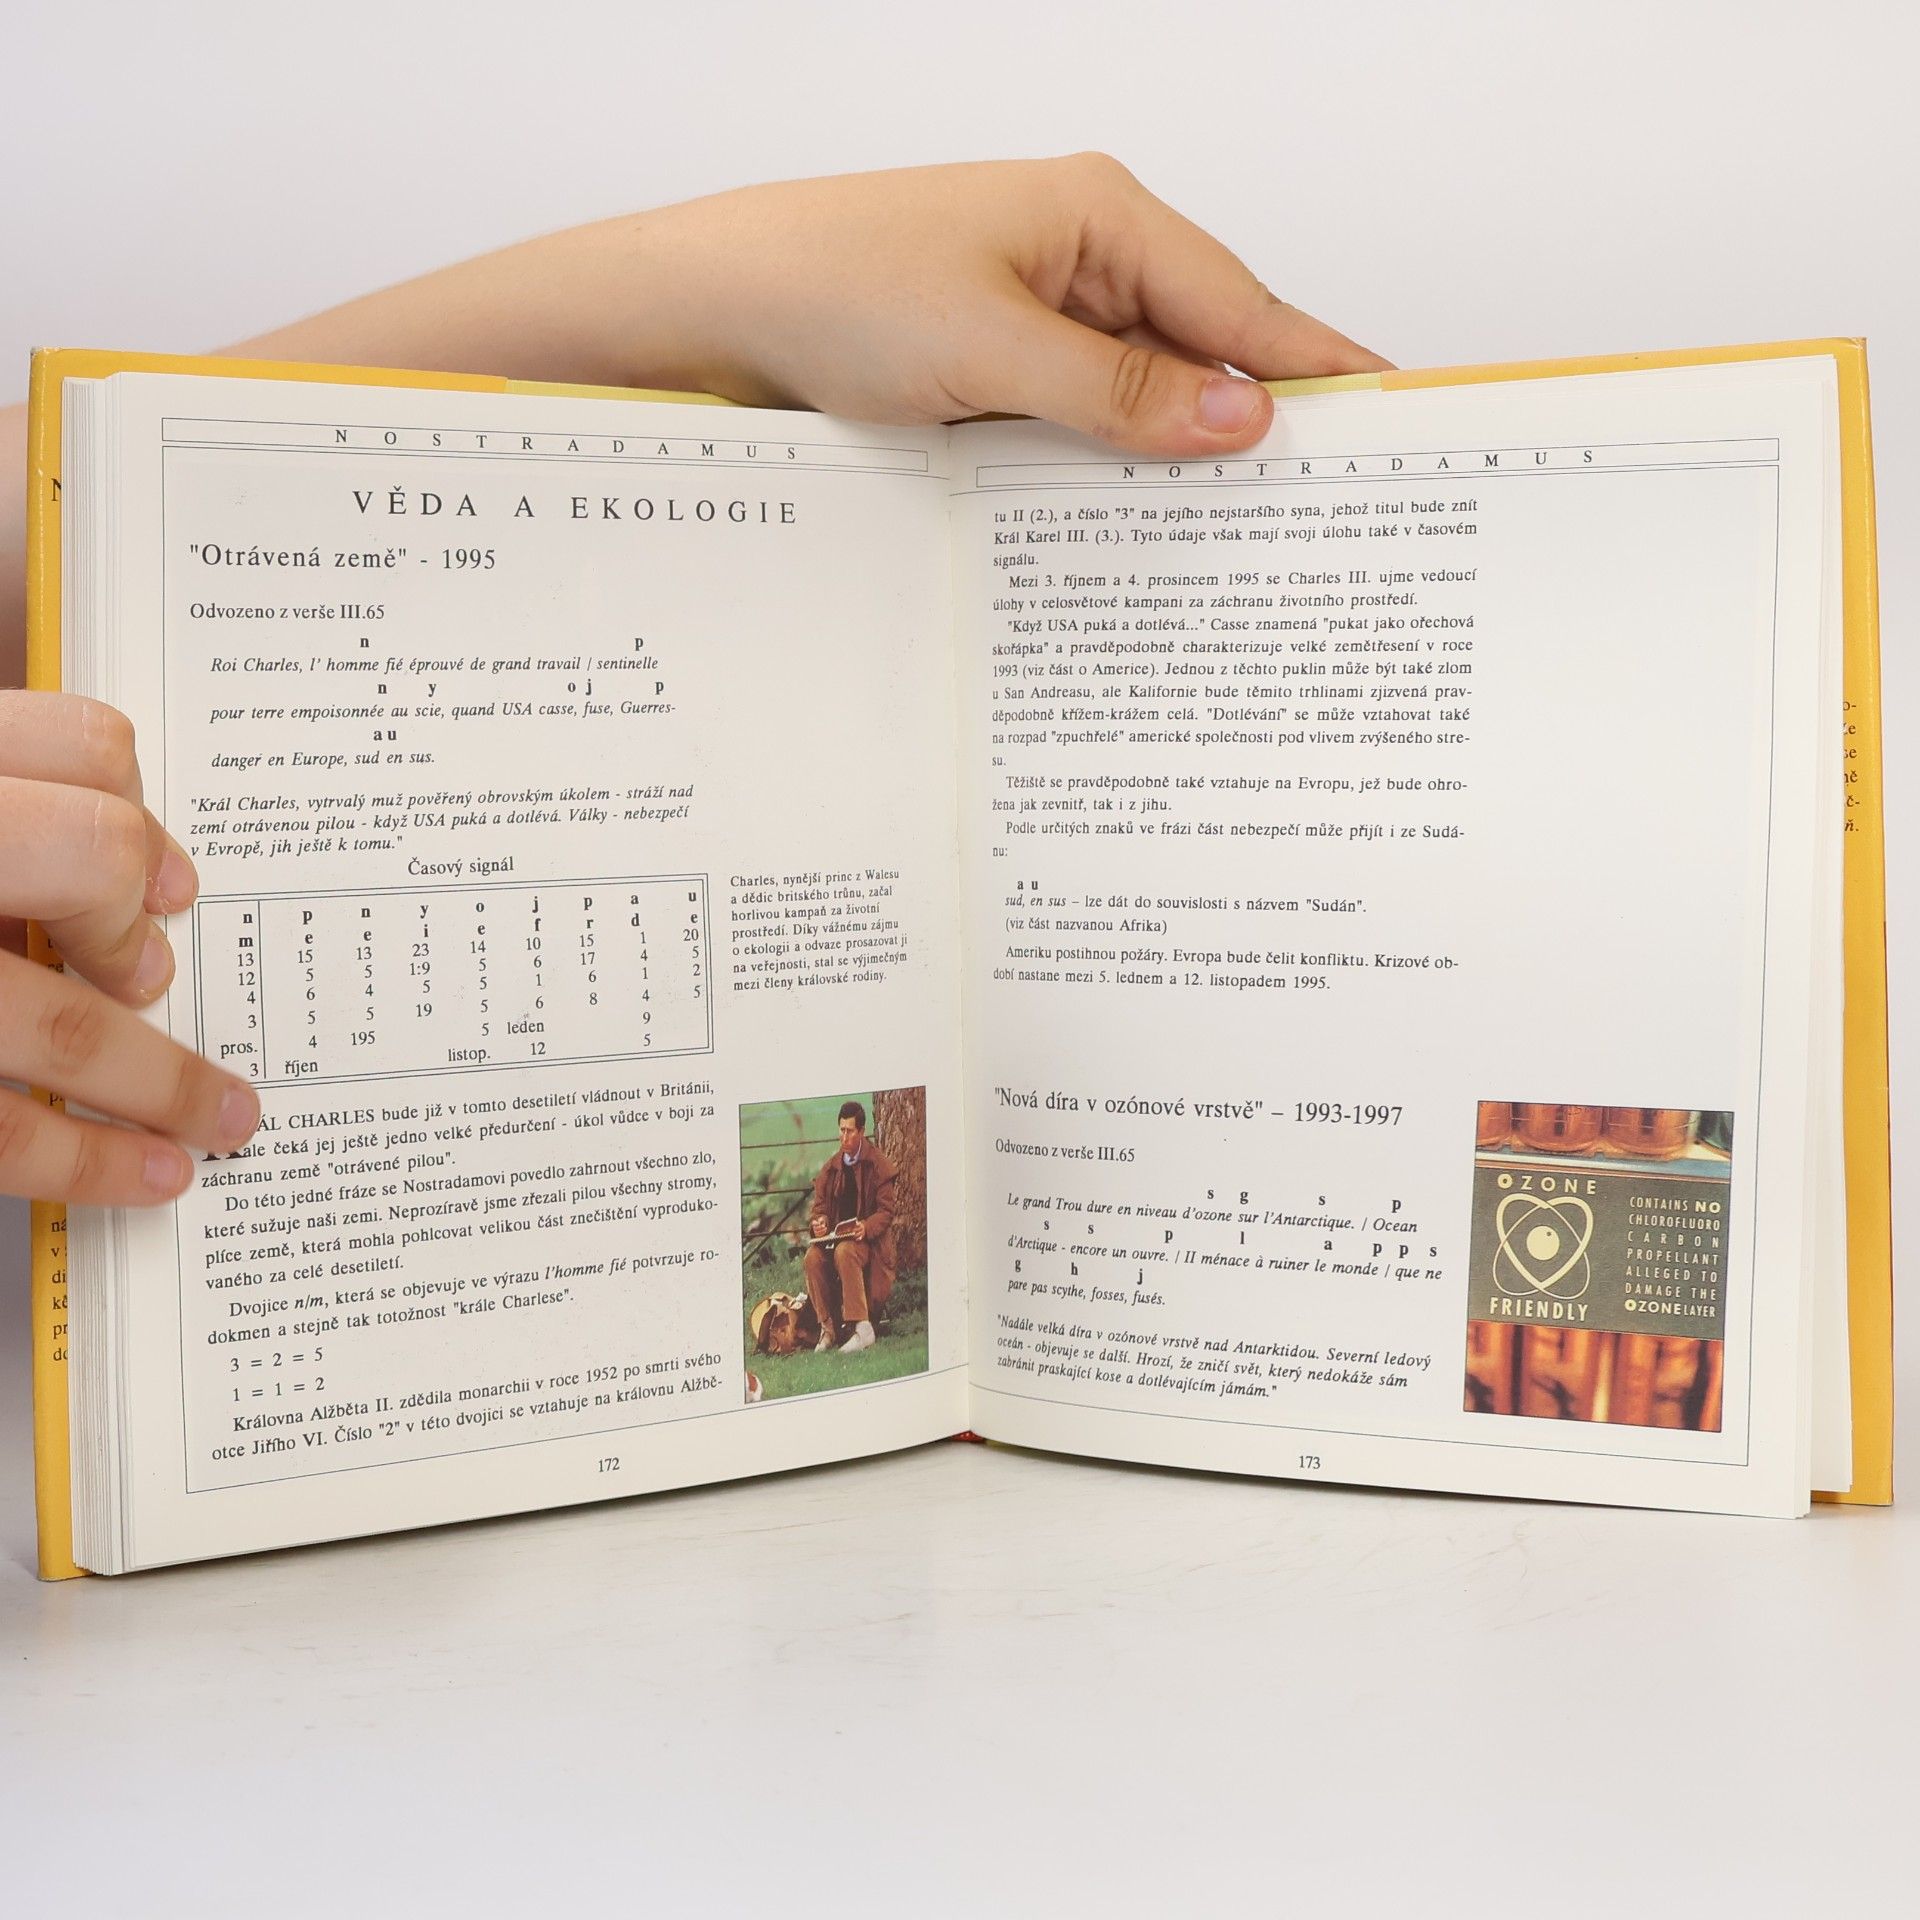 N O S T R A D A M U S
VĚDA A EKOLOGIE
"Otrávená země" - 1995
Odvozeno z verše III.65
n p
Roi Charles, l' homme fié éprouvé de grand travail / sentinelle
n y o j p
pour terre empoisonnée au scie, quand USA casse, fuse, Guerres-
a u
danger en Europe, sud en sus.
"Král Charles, vytrvalý muž pověřený obrovským úkolem - stráží nad
zemí otrávenou pilou - když USA puká a dotlévá. Války - nebezpečí
v Evropě, jih ještě k tomu."
Časový signál
n p n y o j p a u
m e e i e f r d e
13 15 13 23 14 10 15 1 20
12 5 5 1:9 5 6 17 4 5
4 6 4 5 5 1 6 1 2
3 5 5 19 5 6 8 4 5
pros. 4 195 5 leden 9
3 říjen listop. 12 5
Charles, nynější princ z Walesu
a dědic britského trůnu, začal
horlivou kampaň za životní
prostředí. Díky vážnému zájmu
o ekologii a odvaze prosazovat ji
na veřejnosti, stal se výjimečným
mezi členy královské rodiny.
ÁL CHARLES bude již v tomto desetiletí vládnout v Británii,
ale čeká jej ještě jedno velké předurčení - úkol vůdce v boji za
záchranu země "otrávené pilou".
Do této jedné fráze se Nostradamovi povedlo zahrnout všechno zlo,
které sužuje naši zemi. Neprozíravě jsme zřezali pilou všechny stromy,
plíce země, která mohla pohlcovat velikou část znečištění vyproduko-
vaného za celé desetiletí.
Dvojice n/m, která se objevuje ve výrazu l'homme fié potvrzuje ro-
dokmen a stejně tak totožnost "krále Charlese".
3 = 2 = 5
1 = 1 = 2
Královna Alžběta II. zdědila monarchii v roce 1952 po smrti svého
otce Jiřího VI. Číslo "2" v této dvojici se vztahuje na královnu Alžbě-
172
N O S T R A D A M U S
tu II (2.), a číslo "3" na jejího nejstaršího syna, jehož titul bude znít
Král Karel III. (3.). Tyto údaje však mají svoji úlohu také v časovém
signálu.
Mezi 3. říjnem a 4. prosincem 1995 se Charles III. ujme vedoucí
úlohy v celosvětové kampani za záchranu životního prostředí.
"Když USA puká a dotlévá..." Casse znamená "pukat jako ořechová
skořápka" a pravděpodobně charakterizuje velké zemětřesení v roce
1993 (viz část o Americe). Jednou z těchto puklin může být také zlom
u San Andreasu, ale Kalifornie bude těmito trhlinami zjizvená prav-
děpodobně křížem-krážem celá. "Dotlévání" se může vztahovat také
na rozpad "zpuchřelé" americké společnosti pod vlivem zvýšeného stre-
su.
Těžiště se pravděpodobně také vztahuje na Evropu, jež bude ohro-
žena jak zevnitř, tak i z jihu.
Podle určitých znaků ve frázi část nebezpečí může přijít i ze Sudá-
nu:
a u
sud, en sus – lze dát do souvislosti s názvem "Sudán".
(viz část nazvanou Afrika)
Ameriku postihnou požáry. Evropa bude čelit konfliktu. Krizové ob-
dobí nastane mezi 5. lednem a 12. listopadem 1995.
"Nová díra v ozónové vrstvě" – 1993-1997
Odvozeno z verše III.65
s g s p
Le grand Trou dure en niveau d'ozone sur l'Antarctique. / Ocean
s s p l a p p s
d'Arctique - encore un ouvre. / II ménace à ruiner le monde / que ne
g h j
pare pas scythe, fosses, fusés.
"Nadále velká díra v ozónové vrstvě nad Antarktidou. Severní ledový
oceán - objevuje se další. Hrozí, že zničí svět, který nedokáže sám
zabránit praskající kose a dotlévajícím jámám."
OZONE
FRIENDLY
CONTAINS NO
CHLOROFLUORO
CARBON
PROPELLANT
ALLEGED TO
DAMAGE THE
OZONE LAYER
173